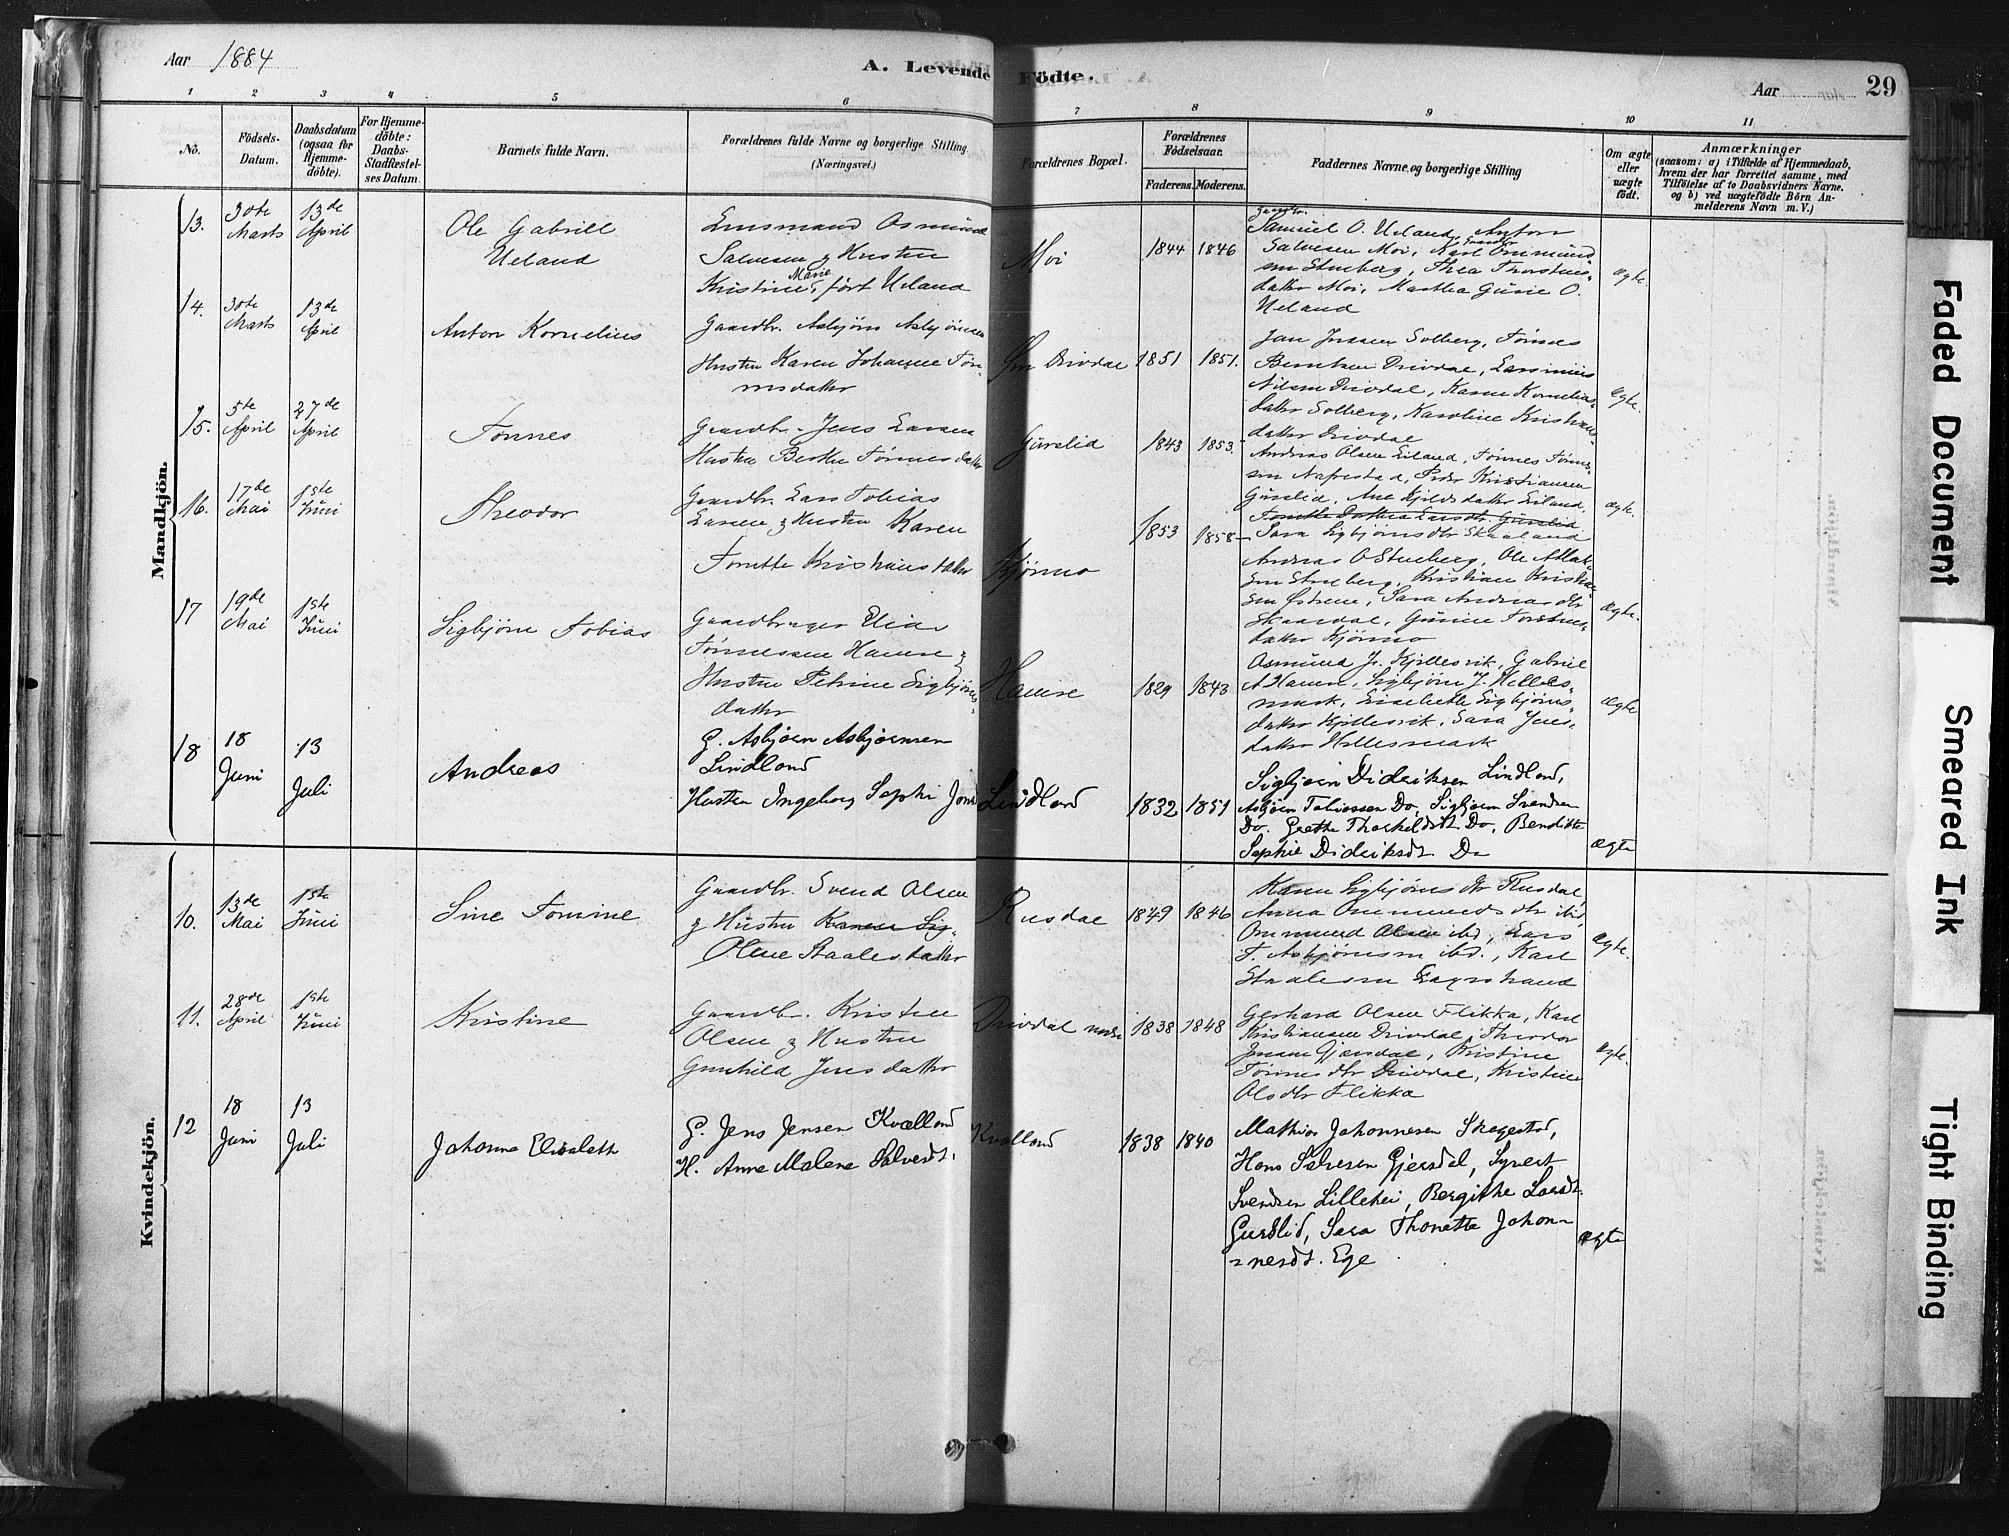 Aar 1884
A. Levende Födte.
Aar 29
1 2 3 4 5 6 7 8 9 10 11
No.
Födsels-
Datum.
Daabsdatum
(ogsaa for
Hjemme-
döbte).
For Hjemme-
döbte:
Daabs-
Stadfæstel-
ses Datum.
Barnets fulde Navn.
Forældrenes fulde Navne og borgerlige Stilling
(Næringsvei.)
Forældrenes Bopæl.
Forældrenes
Födselsaar.
Faderens. Moderens.
Faddernes Navne og borgerlige Stilling
Om ægte
eller
uægte
födt.
Anmærkninger
(saasom: a) i Tilfælde af Hjemmedaab,
hvem der har forrettet samme, med
Tilföielse af to Daabsvidners Navne,
og b) ved uægtefödte Börn An-
melderens Navn m. V.)
Mandkjön.
13.
30te
Marts
13de
April
Ole Gabriel
Ueland
Osmund
Salvesen & Hustru
Kristine Marie födt Ueland
Moi
1844 1846
Samuel O. Ueland, Anton
Salvesen Moi, Karl Ommund
sen Stueberg, Thea Thorstens-
datter Moi, Martha Gurie O.
Ueland
ægte.
14.
30te
Marts
13de
April
Anton Kornelius
Gaardbr. Asbjörn Asbjörnsen
Hustru Karen Johanne Tön-
nesdatter
Drivdal
1851 1851.
Jan Jensen Solberg, Tönnes
Berntsen Drivdal,
Nilsen Drivdal, Karen Kornelius-
datter Solberg, Karoline Kristians-
datter Drivdal
ægte.
15.
5te
April
27de
April
Tönnes
Gaardbr. Jens Larsen
Hustru Berthe Tönnesdatter
Gurslid
1843 1853.
Andreas Olsen Eiland, Tönnes Tönnes-
sen Nafrestad, Peder Kristiansen
Gurslid, Ane Kjeldsdatter Eiland,
Tonette Dorthea Larsdtr. Gurslid
Sara Sigbjörnsdtr Skaaland
ægte.
16.
17de
Mai
1ste
Juni
Theodor
Gaardbr. Lars Tobias
Larsen & Hustru Karen
Tonette Kristiansdatter
Kjörmo
1853 1858
Andreas O Stueberg, Ole Atlak-
sen Stueberg, Kristian Kristian-
sen Östrem, Sara Andreasdtr
Skaardal, Gunne Torstens-
datter Kjörmo
ægte.
17
19de
Mai
1ste
Juni
Sigbjörn Tobias
Gaardbruger Elias
Tönnessen Hauen &
Hustru Petrine Sigbjörns-
datter
1829 1843
Osmund Js. Kjellesvik, Gabriel
A Hauen, Sigbjörn J. Helles-
mark, Elisabette Sigbjörns-
datter Kjellesvik, Sara Jens-
datter Hellesmark
ægte
18
18
Juni
13
Juli
Andreas
G. Asbjørn Asbjørnsen
Lindland
Hustru Ingeborg Sophi Jons
Lindland
1832 1851
Sigbjørn Didriksen Lindland,
Asbjørn Tobiassen Do, Sigbjørn Svendsen
Do. Grethe Thorkildsdt. Do, Bendikte
Sophie Didriksdt. Do
ægte
Kvindekjön.
10.
13de
Mai
1ste
Juni
Sine Tomine
Gaardbr. Svend Olsen
& Hustru Karen Sig-
Olene Staalesdatter
Rusdal
1849 1846
Karen Sigbjörnsdtr Rusdal,
Anna Ommundsdtr ibd,
Ommund Olsen ibd, Lars
T. Asbjörnsen ibd., Karl
Staalesen Eegestrand
Ægte.
11.
28de
April
1ste
Juni
Kristine
Gaardbr. Kristen
Olsen & Hustru
Gunhild Jensdatter
Drivdal nedre
1838 1848
Gerhard Olsen Flikka, Karl
Kristiansen Drivdal, Theodor
Jensen Gjersdal, Kristine
Tönnesdtr Drivdal, Kristine
Olsdtr Flikka
ægte.
12
18
Juni
13
Juli
Johanne Elisabeth
G. Jens Jensen Kvalland
H. Anne Malene Salvesdt.
Kvalland
1838 1840
Mathias Johannesen Skogestad,
Hans Salvesen Gjersdal, Syvert
Svendsen Lillehei, Bergithe Larsdt.
Gurslid, Sara Thonette Johan-
nesdt. Ege
ægte
Faded Document
Smeared Ink
Tight Binding